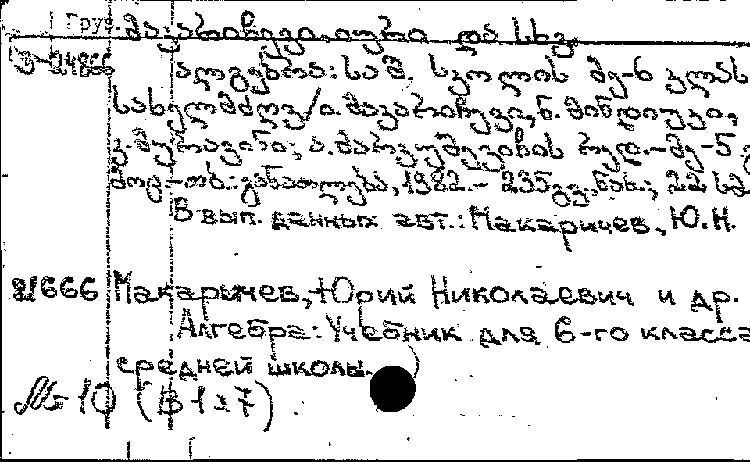 Груз. მაკარიჩევი, იური და სხვ.
ალგებრა: საშ. სკოლის მე-6 კლას
სახელმძღვ/ი. მაკარიჩევი, ნ. მინდიუკი,
კ. მურავინი; ა. მარკუშევიჩის რედ.-მე-5 გ
თბ.: განათლება, 1982.- 235 გვ. ნახ.; 22 სმ
В вып. данных авт.: Макаричев, Ю.Н.
21666 Макарычев, Юрий Николаевич и др.
Алгебра: Учебник для 6-го класса
средней школы.
№ 10 (В 127)